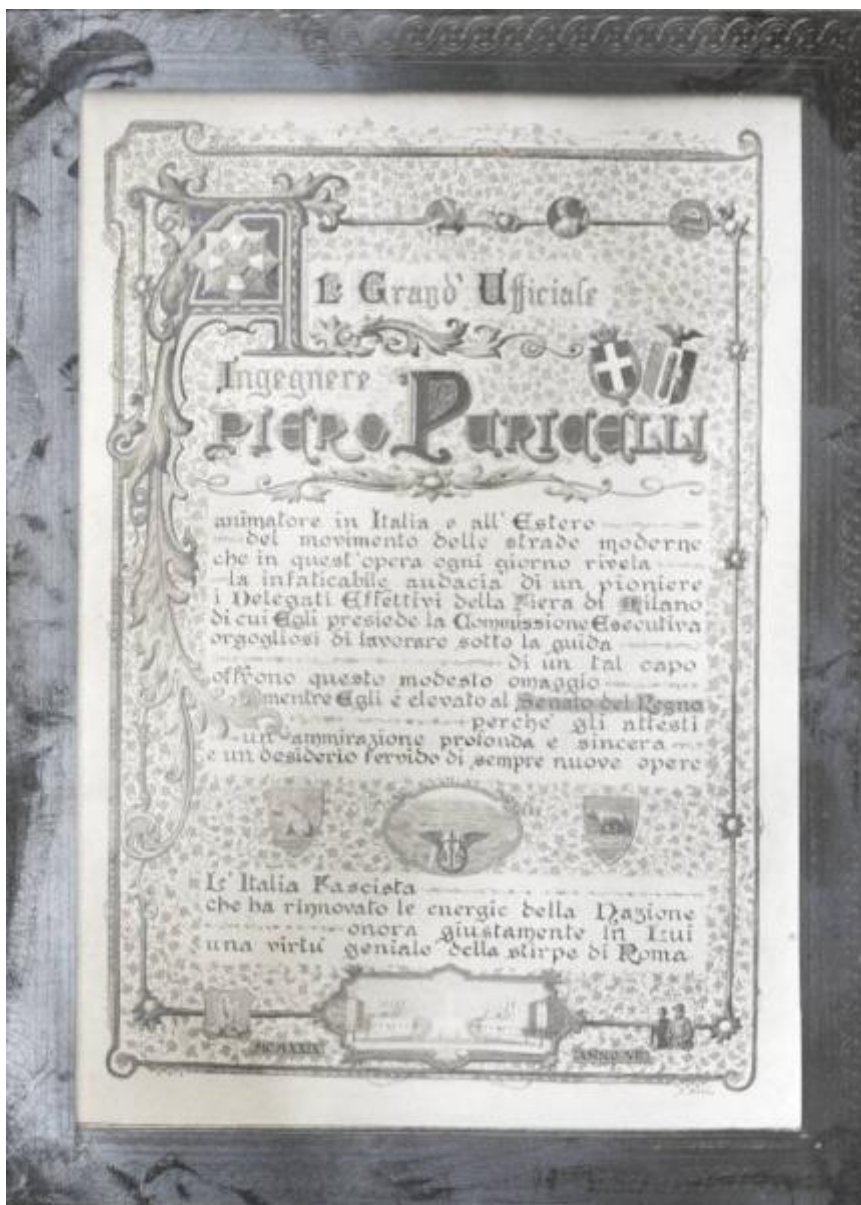 Al Grand' Ufficiale
Ingegnere
PIERO PURICELLI
animatore in Italia e all'Estero
del movimento delle strade moderne
che in quest'opera ogni giorno rivela
la infaticabile audacia di un pioniere
i Delegati Effettivi della Fiera di Milano
di cui Egli presiede la Commissione Esecutiva
orgogliosi di lavorare sotto la guida
di un tal capo
offrono questo modesto omaggio
mentre Egli è elevato al Senato del Regno
perchè gli attesti
un'ammirazione profonda e sincera
e un desiderio fervido di sempre nuove opere
L'Italia Fascista
che ha rinnovato le energie della Nazione
onora giustamente in Lui
una virtù geniale della stirpe di Roma
MCMXXIX
ANNO VII